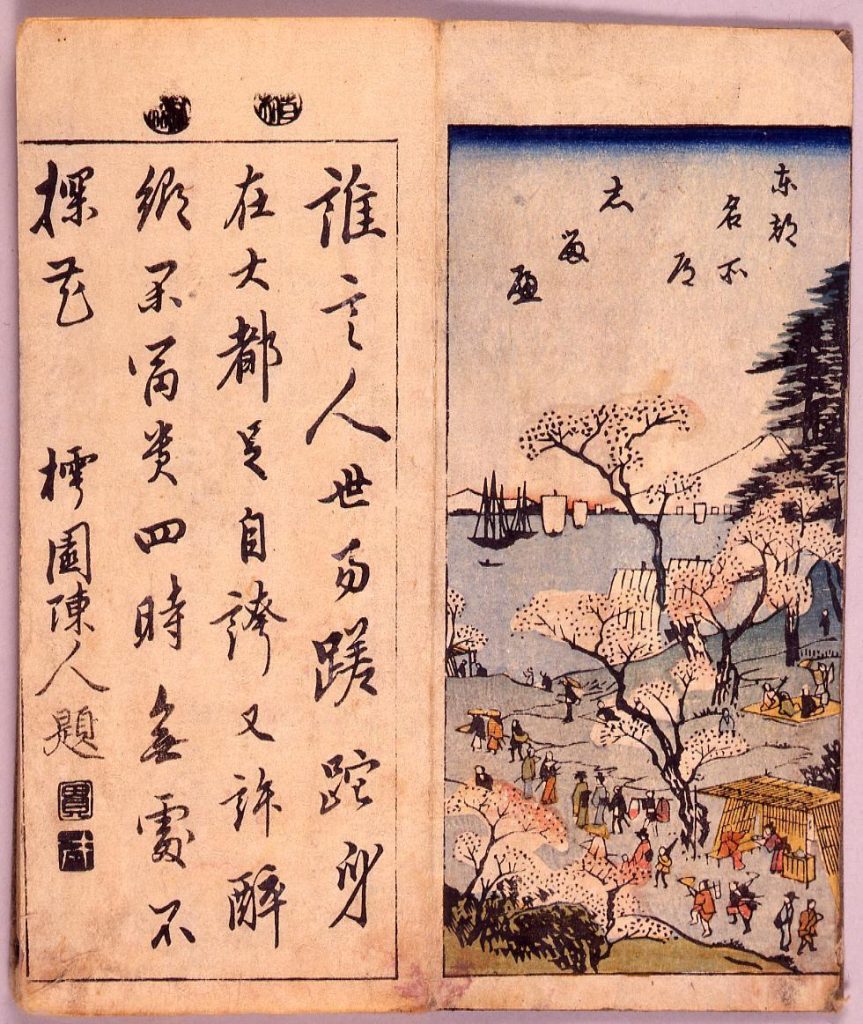 東都
名所
道
志
留
遍
誰言人世易蹉跎身
在大都足自誇又許醉
鄉富貴四時無處不
探花 樗園陳人題